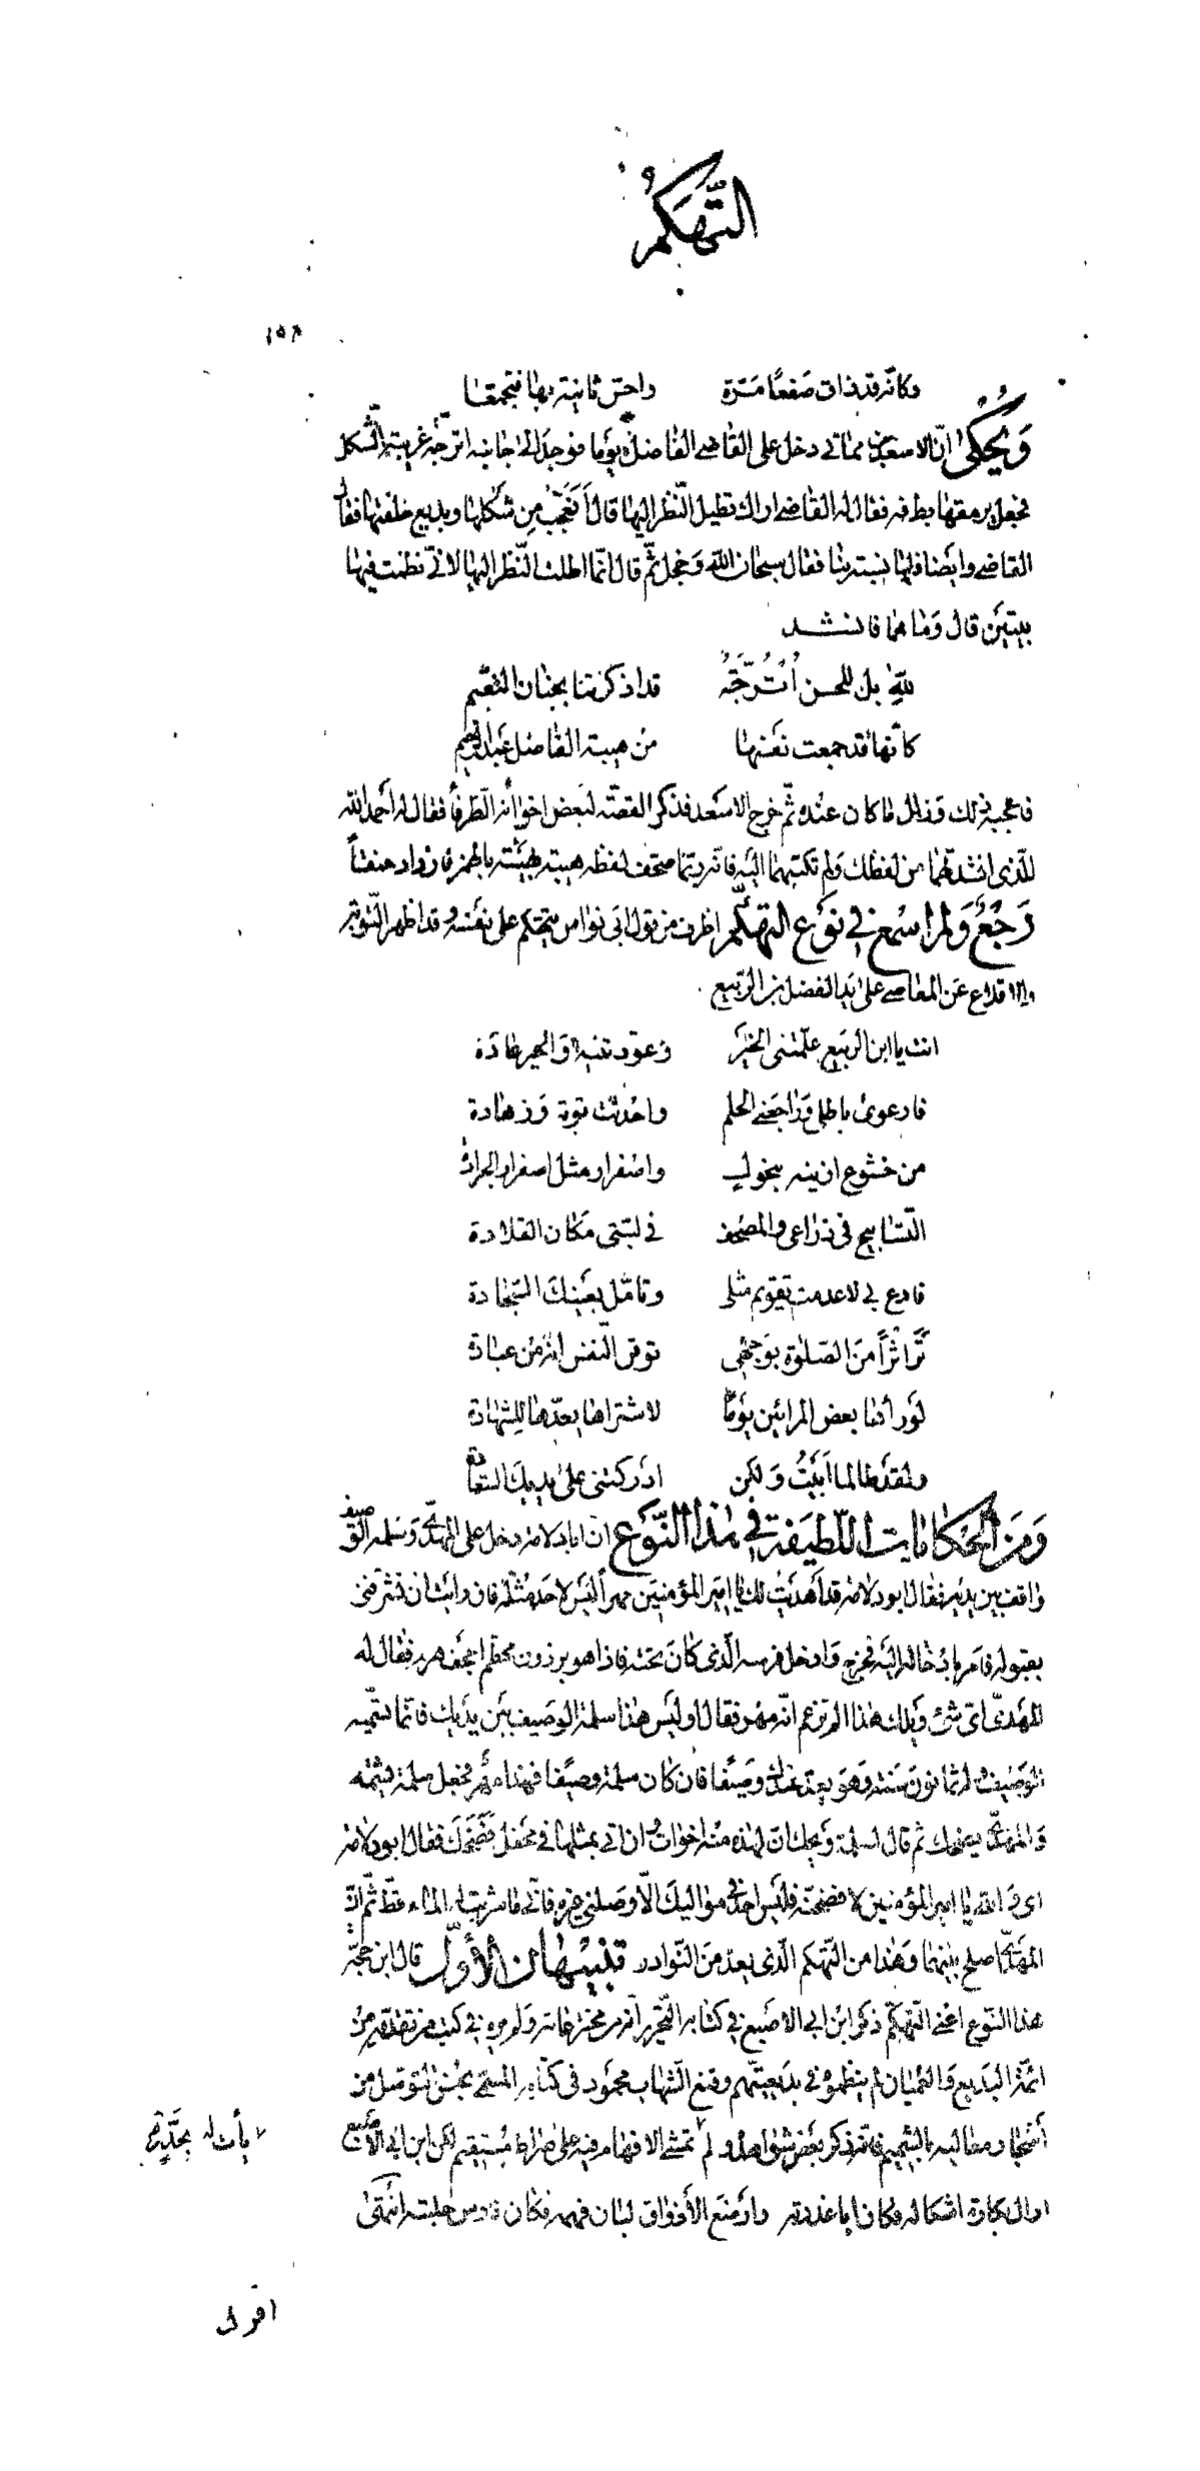 التهكم
١٥٨
وكانه قد ذاق صفعا مرة واحس ثانية بها فتجمعا
ويحكى ان الاسعد بن مماتى دخل على القاضى الفاضل يوما فوجد الى جانبه اترجة غريبة الشكل
فجعل يرمقها بطرفه فقال له القاضى اراك تطيل النظر اليها قال اتعجب من شكلها وبديع خلقتها فقال
القاضى وايضا فلها نسبة بنا فقال سبحان الله وخجل ثم قال انما اطلت النظر اليها لانى نظمت فيها
بيتين قال وما هما فانشد
لله بل للحسن اترجة قد اذكرتنا بجنان النعيم
كانها قد جمعت نفسها من هيبة الفاضل عبد الرحيم
فاعجبه ذلك وزال ما كان عنده ثم خرج الاسعد فذكر القصة لبعض اخوانه الظرفا فقال له احمد الله
الذى انشدتهما من لفظك ولم تكتبهما اليه فانه ربما صحف لفظه هيبة بهيئة بالهمز فازداد حنقا
رجع ولم اسمع فى نوع التهكم اظرف من قول ابى نواس يتهكم على نفسه وقد اظهر التوبة
والاقلاع عن المعاصى على يد الفضل بن الربيع
انت يا ابن الربيع علمتنى الخير وعودتنيه والخير عادة
فارعوى باطلى وراجعنى الحلم واحدثت توبة وزهادة
من خشوع ازينه بنحول واصفرار مثل اصفرار الجرادة
التسابيح فى ذراعى والمصحف فى لبتى مكان القلادة
فادع بى لا عدمت تقويم مثلى وتامل بعينك السجادة
تر اثرا من الصلوة بوجهى توقن النفس انه من عبادة
لو رأها بعض المرائين يوما لاشتراها يعدها للشهادة
ولقد طالما ابيت ولكن ادركتنى على يديك السعادة
ومن الحكايات اللطيفة فى هذا النوع ان ابا دلامة دخل على المهدى وسلمة الوصيف
واقف بين يديه فقال ابو دلامة قد اهديت لك يا امير المؤمنين مهرا ليس لاحد مثله فان رايت ان تشرفنى
بقبوله فامر بادخاله اليه فخرج وادخل فرسه الذى كان تحته فاذا هو برذون محطم اعجف هرم فقال له
المهدى اى شئ ويلك هذا الم تزعم انه مهر فقال اوليس هذا سلمة الوصيف بين يديك قائما تسميه
الوصيف وله ثمانون سنة وهو بعد عندك وصيفا فان كان سلمة وصيفا فهذا مهر فجعل سلمة يشتمه
والمهدى يضحك ثم قال لسلمة ويحك ان لهذه منه اخوات وان اتى بمثلها فى محفل فضحك فقال ابو دلامة
اى والله يا امير المؤمنين لافضحنه فليس احد فى مواليك الا وصلنى غيره فانى ما شربت له الماء قط ثم ان
المهدى اصلح بينهما وهذا من التهكم الذى يعد من النوادر تنبيهان الاول قال ابن حجة
هذا النوع اعنى التهكم ذكر ابن ابى الاصبع فى كتابه التحرير انه من مخترعاته ولم يره فى كتب من تقدمه من
ائمة البديع والعميان لم ينظموه فى بديعيتهم وقنع الشهاب محمود فى كتابه المسمى بحسن التوسل من
اشجار معاليه بالشميم فانه ذكر بعض شواهده و لم تمش الافهام فيه على صراط مستقيم لكن ابن ابى الاصبع
ازال بكارة اشكاله وكان ابا عذرته وارضع الاذواق لبان فهمه فكان فارس حلبته انتهى
يأت له بحد
اقول